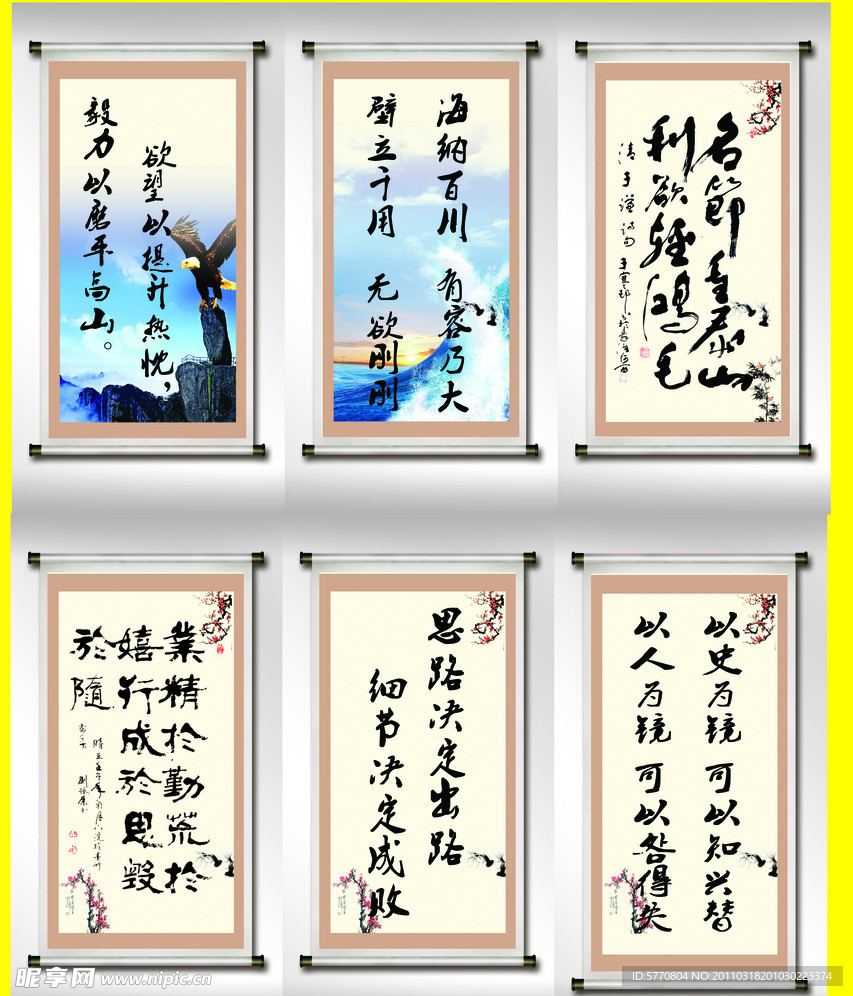 欲望以提升热忱，
毅力以磨平高山。
海纳百川 有容乃大
壁立千用 无欲刚刚
名節重泰山
利欲輕鴻毛
清 于谦 诗句
業精於勤荒於
嬉行成於思毀
於隨
思路决定出路
细节决定成败
以史为镜 可以知兴替
以人为镜 可以咎得失
昵享网 www.nipic.cn
ID:5770804 NO:20110318201030223374